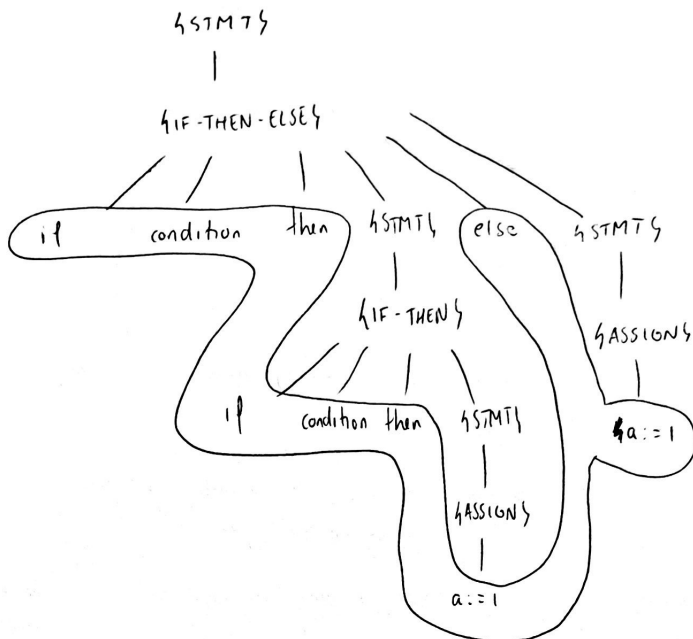 ⟨STMT⟩
⟨IF-THEN-ELSE⟩
if condition then ⟨STMT⟩ else ⟨STMT⟩
⟨IF-THEN⟩
⟨ASSIGN⟩
if condition then ⟨STMT⟩ a:=1
⟨ASSIGN⟩
a:=1